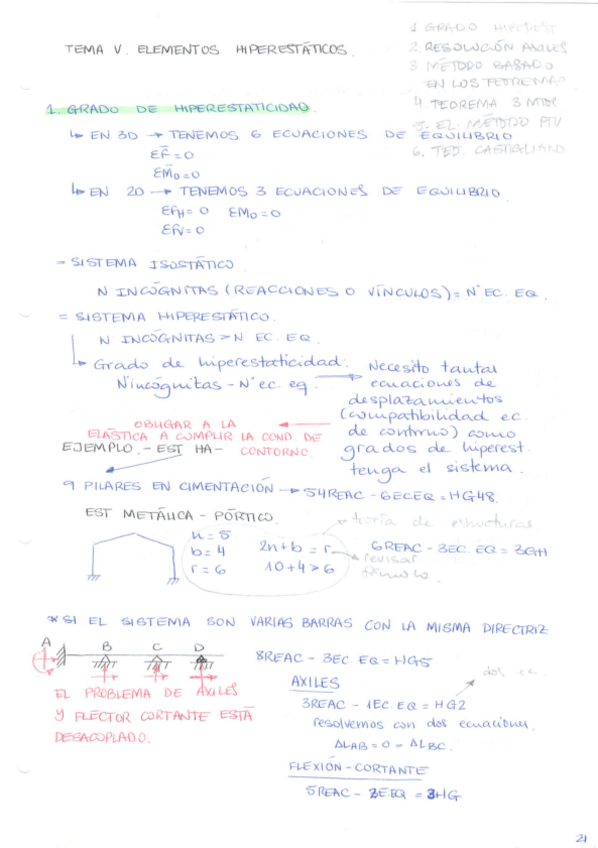 TEMA V. ELEMENTOS HIPERESTÁTICOS.
1 GRADO HIPEREST
2. RESOLUCIÓN AXILES
3 MÉTODO BASADO
EN LOS TEOREMAS
4. TEOREMA 3 MTOS
5. EL MÉTODO PTV
6. TEO. CASTIGLIANO
1. GRADO DE HIPERESTATICIDAD.
↳ EN 3D → TENEMOS 6 ECUACIONES DE EQUILIBRIO
ΣF̄ = 0
ΣM̄o = 0
↳ EN 2D → TENEMOS 3 ECUACIONES DE EQUILIBRIO
ΣFH = 0 ΣMo = 0
ΣFV = 0
= SISTEMA ISOSTÁTICO.
N INCÓGNITAS (REACCIONES O VÍNCULOS) = Nº EC. EQ.
= SISTEMA HIPERESTÁTICO.
N INCÓGNITAS > N EC. EQ.
↳ Grado de hiperestaticidad:
Nºincógnitas - Nº ec. eq.
Necesito tantas
ecuaciones de
desplazamientos
(compatibilidad ec.
de contorno) como
grados de hiperest.
tenga el sistema.
OBLIGAR A LA
ELÁSTICA A CUMPLIR LA COND. DE
CONTORNO.
EJEMPLO.- EST HA-
9 PILARES EN CIMENTACIÓN → 54REAC - 6EC.EQ = HG48.
EST METÁLICA - PÓRTICO.
n = 5
b = 4
r = 6
2n + b = r
10 + 4 > 6
teoría de estructuras
revisar
6REAC - 3EC. EQ = 3GH
* SI EL SISTEMA SON VARIAS BARRAS CON LA MISMA DIRECTRIZ
A B C D
8REAC - 3EC. EQ = HG5
dos ec.
EL PROBLEMA DE AXILES
Y FLECTOR CORTANTE ESTÁ
DESACOPLADO.
AXILES
3REAC - 1EC. EQ = HG2
resolvemos con dos ecuaciones.
ΔLAB = 0 = ΔLBC.
FLEXIÓN - CORTANTE
5REAC - 2E.EQ = 3HG
21